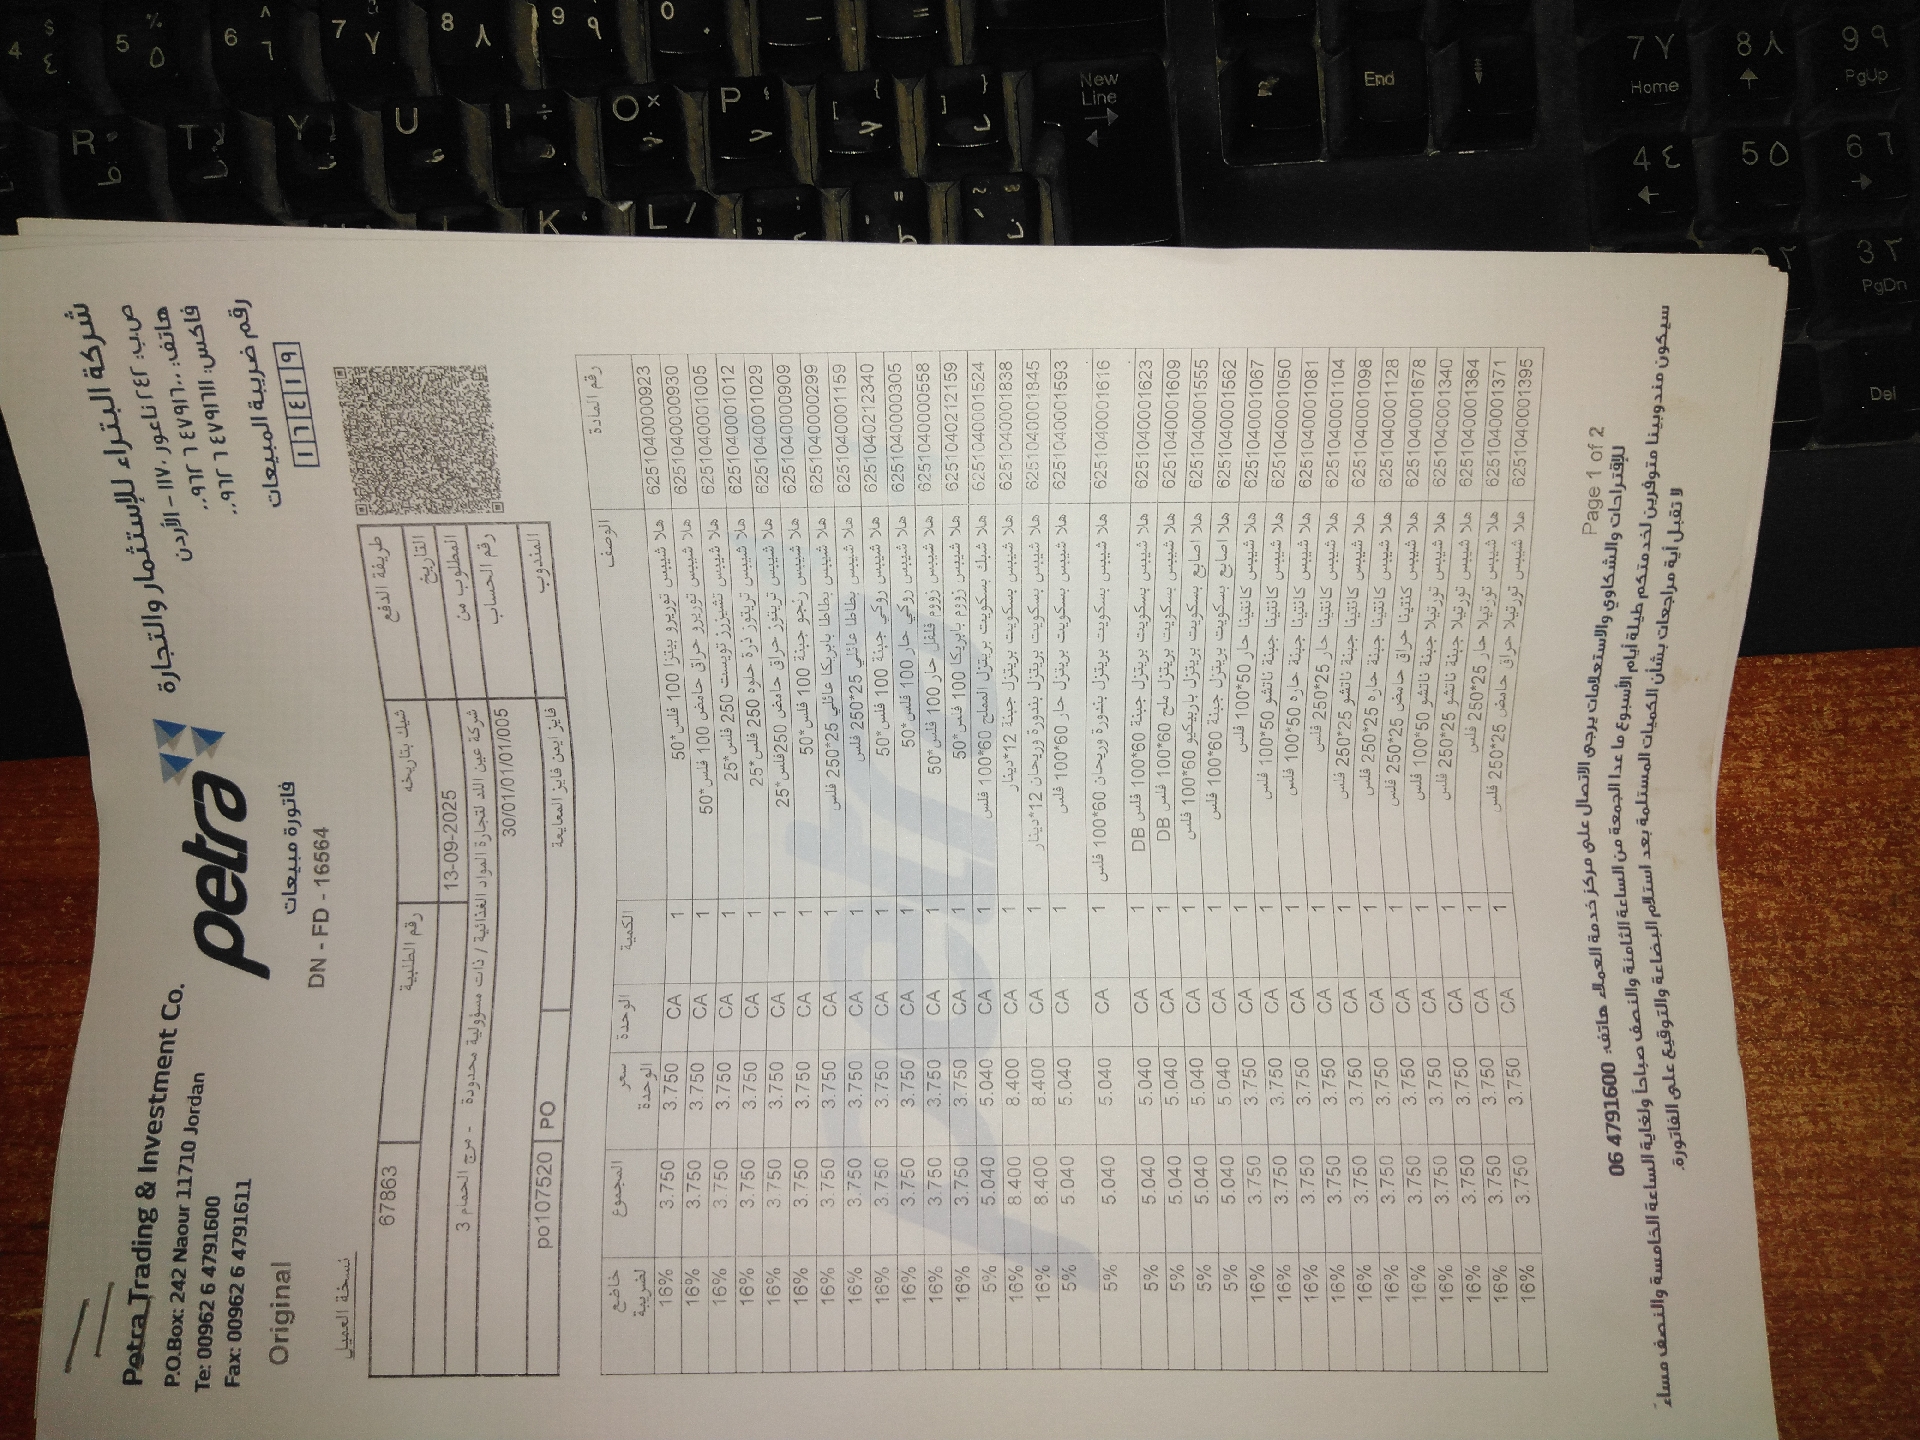 Petra Trading & Investment Co.
P.O.Box: 242 Naour 11710 Jordan
Te: 00962 6 4791600
Fax: 00962 6 4791611
petra
شركة البتراء للإستثمار والتجارة
ص.ب: ٢٤٢ ناعور ١١٧١٠ - الأردن
هاتف: ٤٧٩١٦٠٠ ٦ ٠٠٩٦٢
فاكس: ٤٧٩١٦١١ ٦ ٠٠٩٦٢
رقم ضريبة المبيعات
١٦٤١٩
Original
فاتورة مبيعات
DN - FD - 16564
نسخة العميل
طريقة الدفع شيك بتاريخه رقم الطلبية 67863
التاريخ 13-09-2025
المطلوب من شركة عين اللد لتجارة المواد الغذائية / ذات مسؤولية محدودة - مرج الحمام 3
رقم الحساب 30/01/01/01/005
المندوب فايز ايمن فايز المعايعة PO po107520
رقم المادة الوصف الكمية الوحدة سعر الوحدة المجموع خاضع لضريبة
6251040000923 هلا شيبس توريرو بيتزا 100 فلس*50 1 CA 3.750 3.750 16%
6251040000930 هلا شيبس توريرو حراق حامض 100 فلس*50 1 CA 3.750 3.750 16%
6251040001005 هلا شيبس تشيزرز تويست 250 فلس*25 1 CA 3.750 3.750 16%
6251040001012 هلا شيبس ترينتوز ذرة حلوه 250 فلس*25 1 CA 3.750 3.750 16%
6251040001029 هلا شيبس ترينتوز حراق حامض 250فلس*25 1 CA 3.750 3.750 16%
6251040000909 هلا شيبس رنجو جبنة 100 فلس*50 1 CA 3.750 3.750 16%
6251040000299 هلا شيبس بطاطا بابريكا عائلي 25*250 فلس 1 CA 3.750 3.750 16%
6251040001159 هلا شيبس بطاطا عائلي 25*250 فلس 1 CA 3.750 3.750 16%
6251040212340 هلا شيبس روكي جبنة 100 فلس*50 1 CA 3.750 3.750 16%
6251040000305 هلا شيبس روكي حار 100 فلس*50 1 CA 3.750 3.750 16%
6251040000558 هلا شيبس زووم فلفل حار 100 فلس*50 1 CA 3.750 3.750 16%
6251040212159 هلا شيبس زووم بابريكا 100 فلس*50 1 CA 3.750 3.750 16%
6251040001524 هلا شبك بسكويت بريتزل المملح 60*100 فلس 1 CA 5.040 5.040 5%
6251040001838 هلا شيبس بسكويت بريتزل جبنة 12*دينار 1 CA 8.400 8.400 16%
6251040001845 هلا شيبس بسكويت بريتزل بندورة وريحان 12*دينار 1 CA 8.400 8.400 16%
6251040001593 هلا شيبس بسكويت بريتزل حار 60*100 فلس 1 CA 5.040 5.040 5%
6251040001616 هلا شيبس بسكويت بريتزل بندورة وريحان 60*100 فلس 1 CA 5.040 5.040 5%
6251040001623 هلا شيبس بسكويت بريتزل جبنة 60*100 فلس DB 1 CA 5.040 5.040 5%
6251040001609 هلا شيبس بسكويت بريتزل ملح 60*100 فلس DB 1 CA 5.040 5.040 5%
6251040001555 هلا اصابع بسكويت بريتزل باربيكيو 60*100 فلس 1 CA 5.040 5.040 5%
6251040001562 هلا اصابع بسكويت بريتزل جبنة 60*100 فلس 1 CA 5.040 5.040 5%
6251040001067 هلا شيبس كانتينا حار 50*100 فلس 1 CA 3.750 3.750 16%
6251040001050 هلا شيبس كانتينا جبنة ناتشو 50*100 فلس 1 CA 3.750 3.750 16%
6251040001081 هلا شيبس كانتينا جبنة حاره 50*100 فلس 1 CA 3.750 3.750 16%
6251040001104 هلا شيبس كانتينا حار 25*250 فلس 1 CA 3.750 3.750 16%
6251040001098 هلا شيبس كانتينا جبنة ناتشو 25*250 فلس 1 CA 3.750 3.750 16%
6251040001128 هلا شيبس كانتينا جبنة حارة 25*250 فلس 1 CA 3.750 3.750 16%
6251040001678 هلا شيبس كنتينا حراق حامض 25*250 فلس 1 CA 3.750 3.750 16%
6251040001340 هلا شيبس تورتيلا جبنة ناتشو 50*100 فلس 1 CA 3.750 3.750 16%
6251040001364 هلا شيبس تورتيلا جبنة ناتشو 25*250 فلس 1 CA 3.750 3.750 16%
6251040001371 هلا شيبس تورتيلا حار 25*250 فلس 1 CA 3.750 3.750 16%
6251040001395 هلا شيبس تورتيلا حراق حامض 25*250 فلس 1 CA 3.750 3.750 16%
Page 1 of 2
للإقتراحات والشكاوي والاستعلامات يرجى الاتصال على مركز خدمة العملاء هاتف: 4791600 06
سيكون مندوبينا متوفرين لخدمتكم طيلة أيام الأسبوع ما عدا الجمعة من الساعة الثامنة والنصف صباحاً ولغاية الساعة الخامسة والنصف مساءً
لا تقبل أية مراجعات بشأن الكميات المستلمة بعد استلام البضاعة والتوقيع على الفاتورة.
New Line
End
Home
PgUp
PgDn
Del